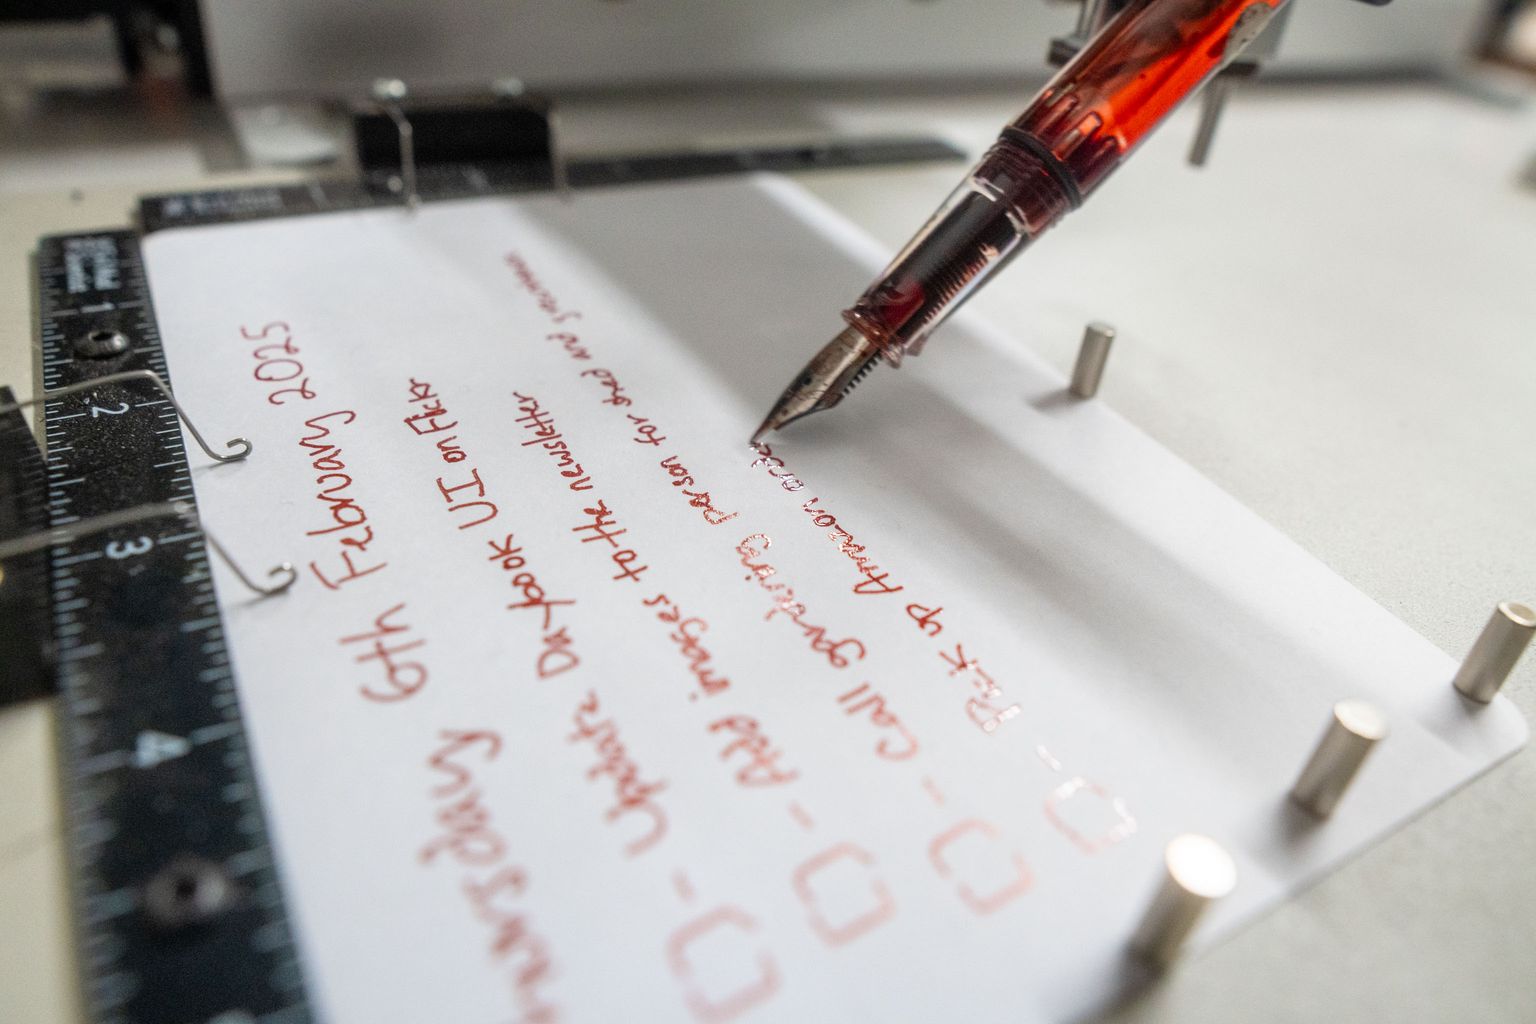 Thursday 6th February 2025
[] - Update Daybook UI on Flickr
[] - Add images to the newsletter
[] - Call gardening person for shed and
[] - Pick up Amazon orde
1
2
3
4